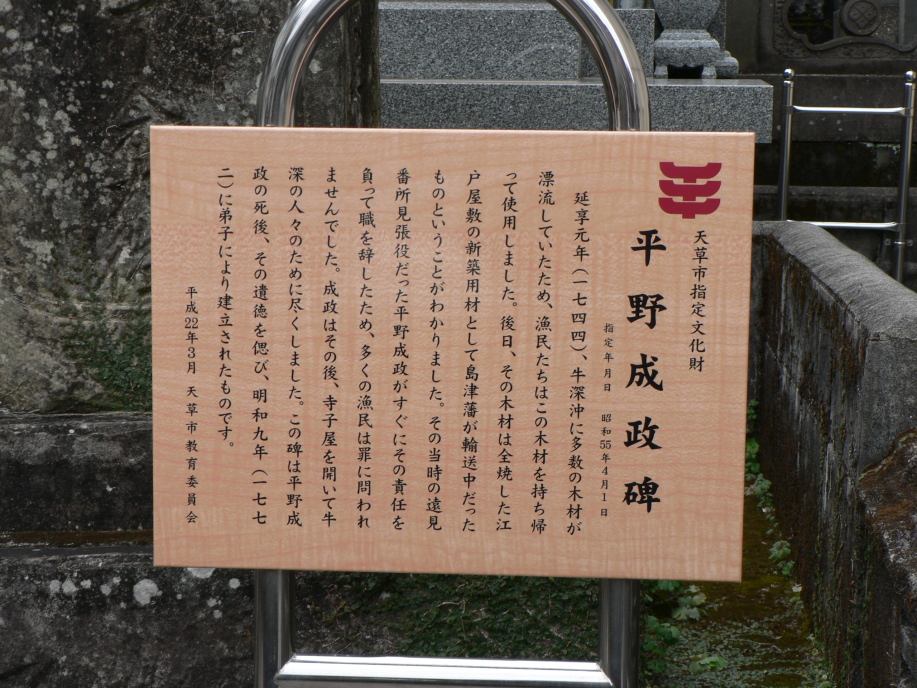 天草市指定文化財
平野成政碑
指定年月日　昭和55年4月1日
延享元年（一七四四）、牛深沖に多数の木材が
漂流していたため、漁民たちはこの木材を持ち帰
って使用しました。後日、その木材は全焼した江
戸屋敷の新築用材として島津藩が輸送中だった
ものということがわかりました。その当時の遠見
番所見張役だった平野成政がすぐにその責任を
負って職を辞したため、多くの漁民は罪に問われ
ませんでした。成政はその後、寺子屋を開いて牛
深の人々のために尽くしました。この碑は平野成
政の死後、その遺徳を偲び、明和九年（一七七
二）に弟子により建立されたものです。
平成22年3月　天草市教育委員会